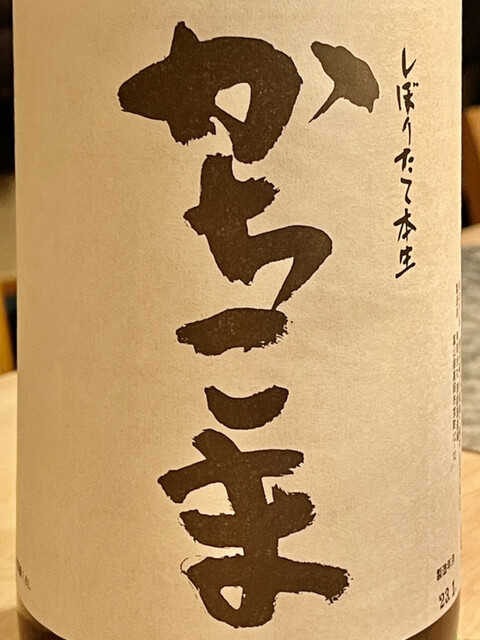 しぼりたて本生
かちこま
製造年月
'23.1